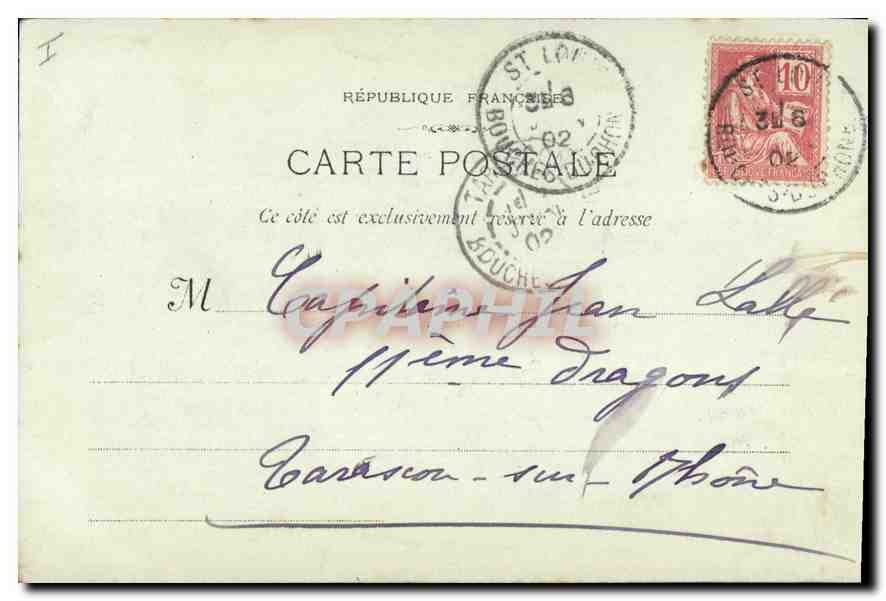 I
RÉPUBLIQUE FRANÇAISE
CARTE POSTALE
Ce côté est exclusivement réservé à l'adresse
M Capitaine Jean Lallé
11ème Dragons
Tarascon-sur-Rhône
10
ST LOUIS
02
BOUCHES-DU-RHONE
ST LOU
02
RHONE
TA
02
BOUCHE
CPAPHIL